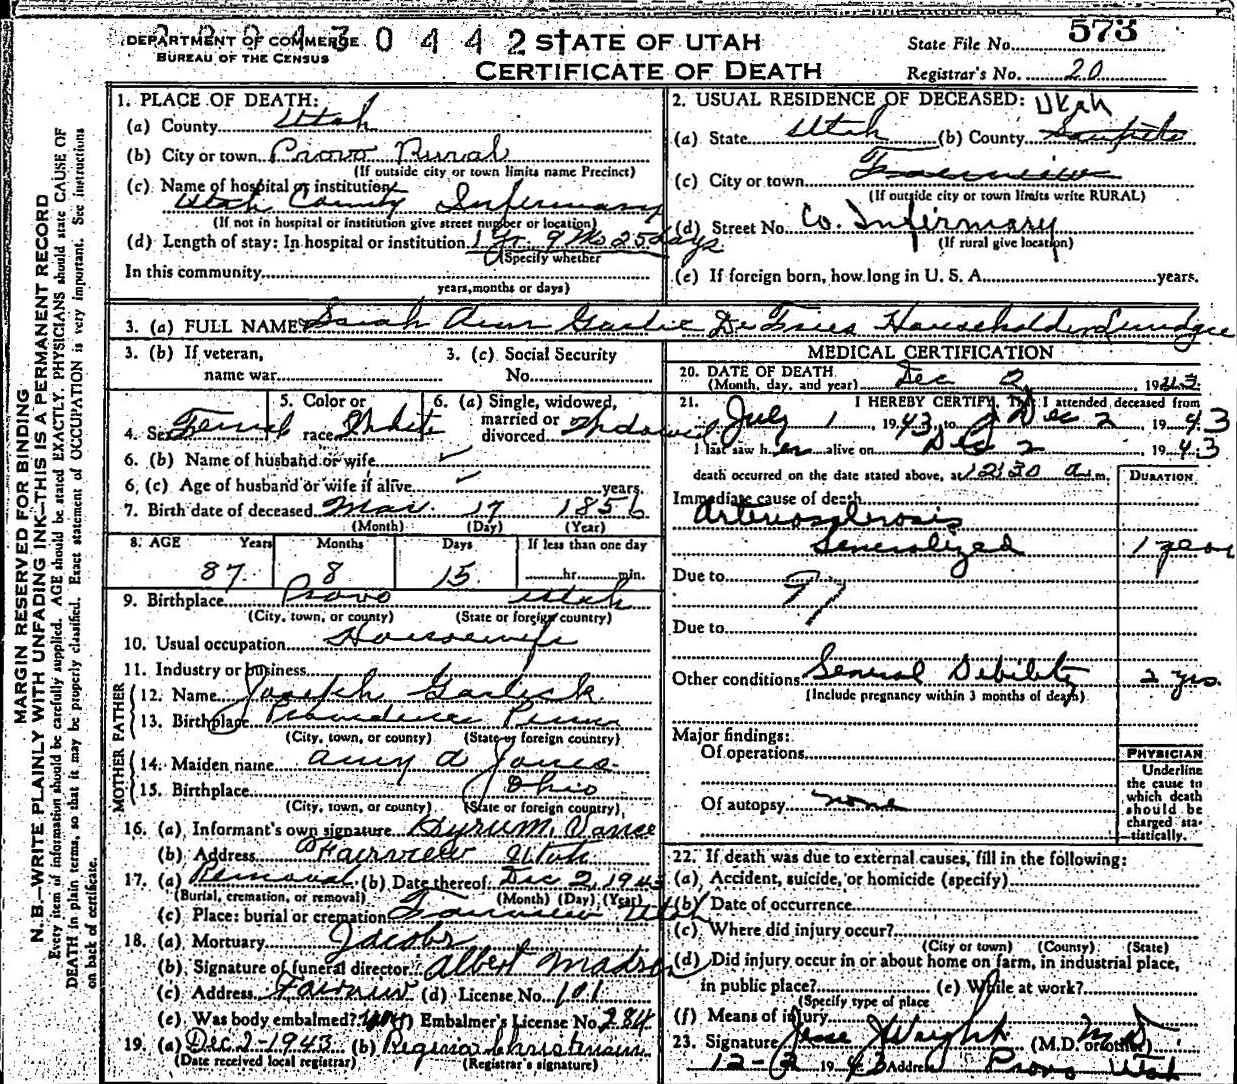 MARGIN RESERVED FOR BINDING
N. B.—WRITE PLAINLY WITH UNFADING INK—THIS IS A PERMANENT RECORD
Every item of information should be carefully supplied. AGE should be stated EXACTLY. PHYSICIANS should state CAUSE OF
DEATH in plain terms, so that it may be properly classified. Exact statement of OCCUPATION is very important. See instructions
on back of certificate.
DEPARTMENT OF COMMERCE
BUREAU OF THE CENSUS
0 4 4 2
STATE OF UTAH
CERTIFICATE OF DEATH
State File No. 573
Registrar's No. 20
1. PLACE OF DEATH:
(a) County Utah
(b) City or town Provo Rural
(If outside city or town limits name Precinct)
(c) Name of hospital or institution
Utah County Infermary
(If not in hospital or institution give street number or location)
(d) Length of stay: In hospital or institution 1 yr. 9 Mo 25 days
(Specify whether
In this community
years, months or days)
2. USUAL RESIDENCE OF DECEASED:
(a) State Utah (b) County Sanpete Utah
(c) City or town Fairview
(If outside city or town limits write RURAL)
(d) Street No. Co. Infirmary
(If rural give location)
(e) If foreign born, how long in U. S. A. years.
3. (a) FULL NAME Sarah Ann Garlic De Fries Householder
3. (b) If veteran,
name war
3. (c) Social Security
No.
4. Sex Femal
5. Color or
race White
6. (a) Single, widowed,
married or
divorced Widowed
6. (b) Name of husband or wife
6. (c) Age of husband or wife if alive years.
7. Birth date of deceased Mar 17 1856
(Month) (Day) (Year)
8. AGE Years Months Days If less than one day
87 8 15 hr. min.
9. Birthplace Provo Utah
(City, town, or county) (State or foreign country)
10. Usual occupation Housewife
11. Industry or business
FATHER
12. Name Joseph Garlick
13. Birthplace Providence Penna
(City, town, or county) (State or foreign country)
MOTHER
14. Maiden name Amy A Jones
15. Birthplace Ohio
(City, town, or county) (State or foreign country)
16. (a) Informant's own signature Hyrum Vance
(b) Address Fairview Utah
17. (a) Removal (b) Date thereof Dec 2, 1943
(Burial, cremation, or removal) (Month) (Day) (Year)
(c) Place: burial or cremation Fairview Utah
18. (a) Mortuary Jacobs
(b) Signature of funeral director Albert Madsen
(c) Address Fairview (d) License No. 101
(e) Was body embalmed? (f) Embalmer's License No. 284
19. (a) Dec 2-1943 (b) Regina Christensen
(Date received local registrar) (Registrar's signature)
MEDICAL CERTIFICATION
20. DATE OF DEATH
(Month, day, and year) Dec 2, 1943
21. I HEREBY CERTIFY, That I attended deceased from
July 1, 1943, to Dec 2 1943
I last saw her alive on Dec 2 1943
death occurred on the date stated above, at 12:30 a.m.
DURATION
Immediate cause of death
Arteriosclerosis
Generalized 1 year
Due to 97
Due to
Other conditions General Debility 2 yrs.
(Include pregnancy within 3 months of death)
Major findings:
Of operations
Of autopsy none
PHYSICIAN
Underline
the cause to
which death
should be
charged sta-
tistically.
22. If death was due to external causes, fill in the following:
(a) Accident, suicide, or homicide (specify)
(b) Date of occurrence
(c) Where did injury occur?
(City or town) (County) (State)
(d) Did injury occur in or about home on farm, in industrial place,
in public place? (e) While at work?
(Specify type of place
(f) Means of injury
23. Signature Jesse J Weight M.D. (M.D. or other)
12-2 1943 Address Provo Utah